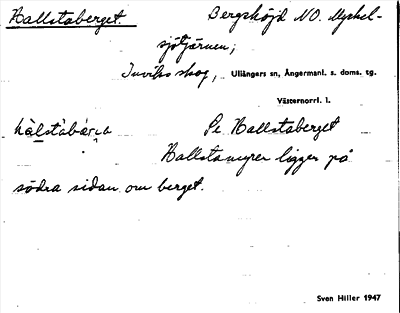 Hallstaberget. Bergshöjd NO. Myckel-
sjötjärnen;
Inviks skog, Ullångers sn, Ångermanl. s. doms. tg.
Västernorrl. l.
Se Hallstaberget
Hallstamyren ligger på
södra sidan om berget.
Sven Hiller 1947